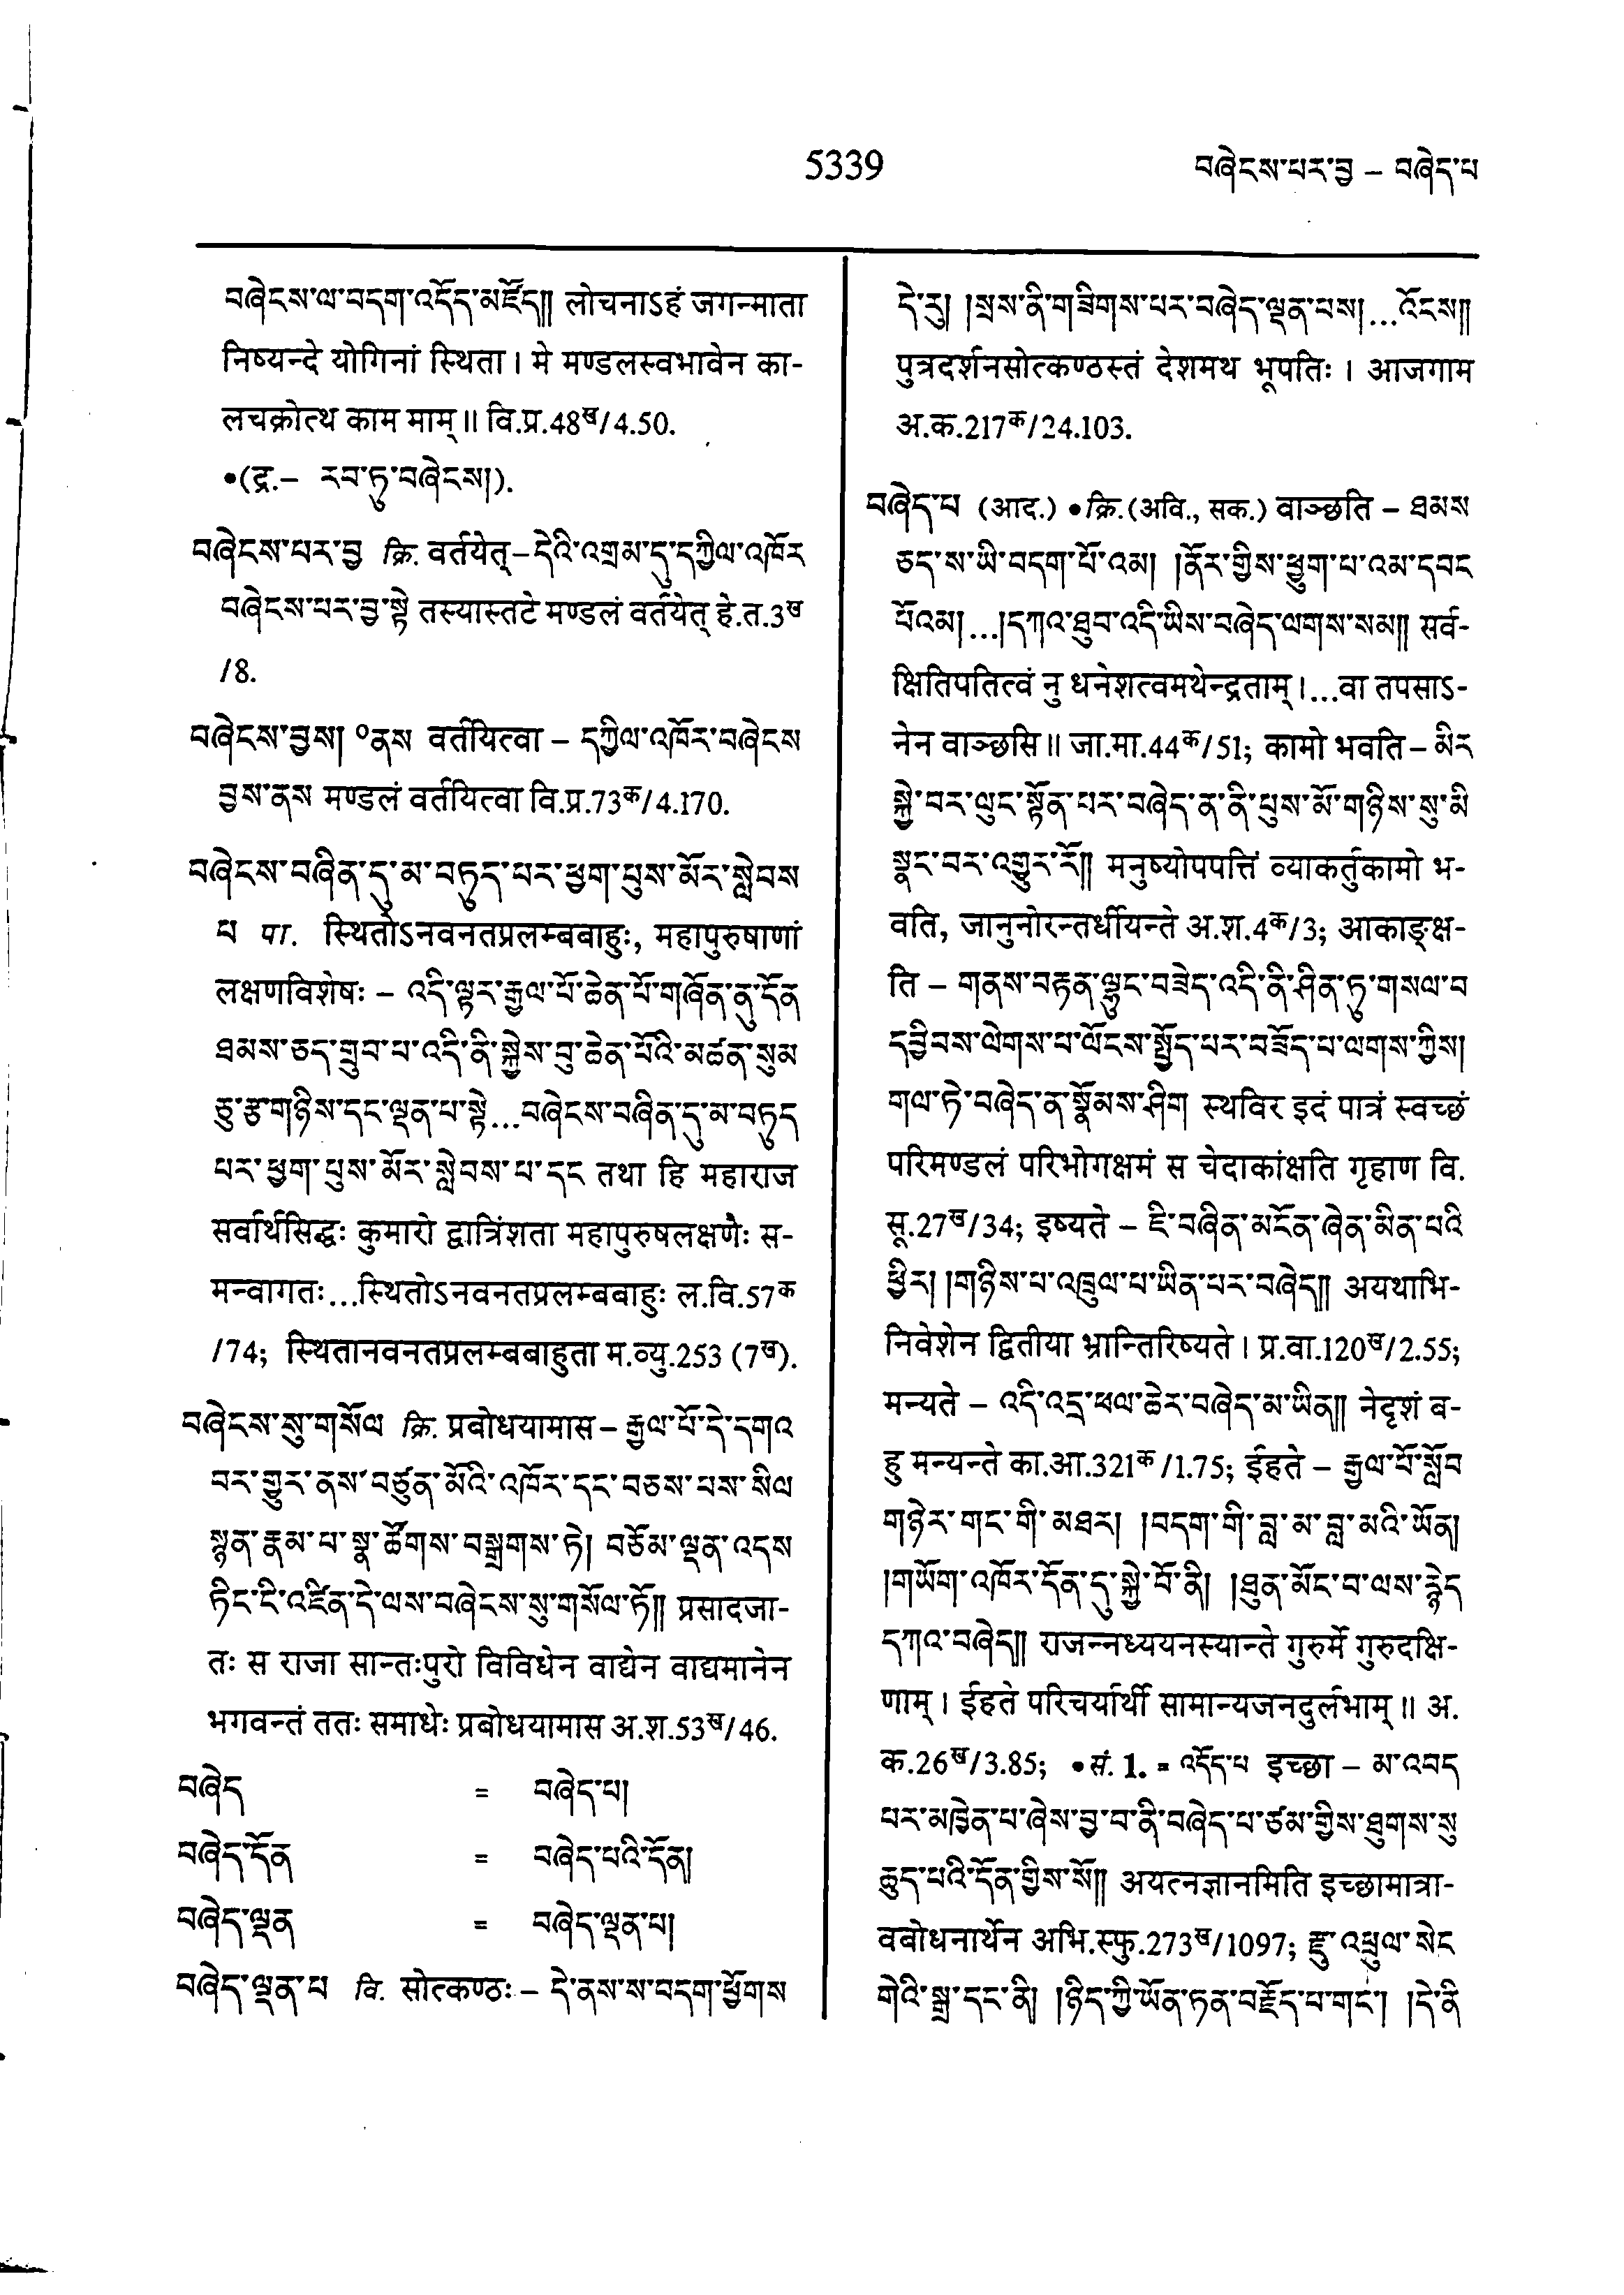 5339
བཞེངས་པར་བྱ – བཞེད་པ
བཞེངས་ལ་བདག་འདོད་མཛོད།། लोचनाऽहं जगन्माता
निष्यन्दे योगिनां स्थिता । मे मण्डलस्वभावेन का-
लचक्रोत्थ काम माम् ॥ वि.प्र.48ख/4.50.
•(द्र.– རབ་ཏུ་བཞེངས།).
བཞེངས་པར་བྱ क्रि. वर्तयेत् – དེའི་འགྲམ་དུ་དཀྱིལ་འཁོར
བཞེངས་པར་བྱ་སྟེ तस्यास्तटे मण्डलं वर्तयेत् हे.त.3ख
/8.
བཞེངས་བྱས། °ནས वर्तयित्वा – དཀྱིལ་འཁོར་བཞེངས
བྱས་ནས मण्डलं वर्तयित्वा वि.प्र.73क/4.170.
བཞེངས་བཞིན་དུ་མ་བཏུད་པར་ཕྱག་པུས་མོར་སླེབས
པ पा. स्थितोऽनवनतप्रलम्बबाहुः, महापुरुषाणां
लक्षणविशेषः – འདི་ལྟར་རྒྱལ་པོ་ཆེན་པོ་གཞོན་ནུ་དོན
ཐམས་ཅད་གྲུབ་པ་འདི་ནི་སྐྱེས་བུ་ཆེན་པོའི་མཚན་སུམ
ཅུ་རྩ་གཉིས་དང་ལྡན་པ་སྟེ...བཞེངས་བཞིན་དུ་མ་བཏུད
པར་ཕྱག་པུས་མོར་སླེབས་པ་དང तथा हि महाराज
सर्वार्थसिद्धः कुमारो द्वात्रिंशता महापुरुषलक्षणैः स-
मन्वागतः...स्थितोऽनवनतप्रलम्बबाहुः ल.वि.57क
/74; स्थितानवनतप्रलम्बबाहुता म.व्यु.253 (7ख).
བཞེངས་སུ་གསོལ क्रि. प्रबोधयामास – རྒྱལ་པོ་དེ་དགའ
བར་གྱུར་ནས་བཙུན་མོའི་འཁོར་དང་བཅས་པས་སིལ
སྙན་རྣམ་པ་སྣ་ཚོགས་བསྒྲགས་ཏེ། བཅོམ་ལྡན་འདས
ཏིང་ངེ་འཛིན་དེ་ལས་བཞེངས་སུ་གསོལ་ཏོ།། प्रसादजा-
तः स राजा सान्तःपुरो विविधेन वाद्येन वाद्यमानेन
भगवन्तं ततः समाधेः प्रबोधयामास अ.श.53ख/46.
བཞེད = བཞེད་པ།
བཞེད་དོན = བཞེད་པའི་དོན།
བཞེད་ལྡན = བཞེད་ལྡན་པ།
བཞེད་ལྡན་པ वि. सोत्कण्ठः – དེ་ནས་ས་བདག་ཕྱོགས
དེ་རུ། །སྲས་ནི་གཟིགས་པར་བཞེད་ལྡན་པས།...འོངས།།
पुत्रदर्शनसोत्कण्ठस्तं देशमथ भूपतिः । आजगाम
अ.क.217क/24.103.
བཞེད་པ (आद.) •क्रि.(अवि., सक.) वाञ्छति – ཐམས
ཅད་ས་ཡི་བདག་པོ་འམ། །ནོར་གྱིས་ཕྱུག་པ་འམ་དབང
པོའམ།...།དཀའ་ཐུབ་འདི་ཡིས་བཞེད་ལགས་སམ།། सर्व-
क्षितिपतित्वं नु धनेशत्वमथेन्द्रताम् ।...वा तपसाऽ-
नेन वाञ्छसि ॥ जा.मा.44क/51; कामो भवति – མིར
སྐྱེ་བར་ལུང་སྟོན་པར་བཞེད་ན་ནི་པུས་མོ་གཉིས་སུ་མི
སྣང་བར་འགྱུར་རོ།། मनुष्योपपत्तिं व्याकर्तुकामो भ-
वति, जानुनोरन्तर्धीयन्ते अ.श.4क/3; आकाङ्क्ष-
ति – གནས་བརྟན་ལྷུང་བཟེད་འདི་ནི་ཤིན་ཏུ་གསལ་བ
དབྱིབས་ལེགས་པ་ལོངས་སྤྱོད་པར་བཟོད་པ་ལགས་ཀྱིས།
གལ་ཏེ་བཞེད་ན་སྣོམས་ཤིག स्थविर इदं पात्रं स्वच्छं
परिमण्डलं परिभोगक्षमं स चेदाकांक्षति गृहाण वि.
सू.27ख/34; इष्यते – ཇི་བཞིན་མངོན་ཞེན་མིན་པའི
ཕྱིར། །གཉིས་པ་འཁྲུལ་པ་ཡིན་པར་བཞེད།། अयथाभि-
निवेशेन द्वितीया भ्रान्तिरिष्यते । प्र.वा.120ख/2.55;
मन्यते – འདི་འདྲ་ཕལ་ཆེར་བཞེད་མ་ཡིན།། नेदृशं ब-
हु मन्यन्ते का.आ.321क/1.75; ईहते – རྒྱལ་པོ་སློབ
གཉེར་གང་གི་མཐར། །བདག་གི་བླ་མ་བླ་མའི་ཡོན།
།གཡོག་འཁོར་དོན་དུ་སྐྱེ་བོ་ནི། །ཐུན་མོང་བ་ལས་རྙེད
དཀའ་བཞེད།། राजन्नध्ययनस्यान्ते गुरुर्मे गुरुदक्षि-
णाम् । ईहते परिचर्यार्थी सामान्यजनदुर्लभाम् ॥ अ.
क.26ख/3.85; •सं. 1. = འདོད་པ इच्छा – མ་འབད
པར་མཁྱེན་པ་ཞེས་བྱ་བ་ནི་བཞེད་པ་ཙམ་གྱིས་ཐུགས་སུ
ཆུད་པའི་དོན་གྱིས་སོ།། अयत्नज्ञानमिति इच्छामात्रा-
वबोधनार्थेन अभि.स्फु.273ख/1097; རྫུ་འཕྲུལ་སེང
གེའི་སྒྲ་དང་ནི། །ཉིད་ཀྱི་ཡོན་ཏན་བརྗོད་པ་གང་། །དེ་ནི